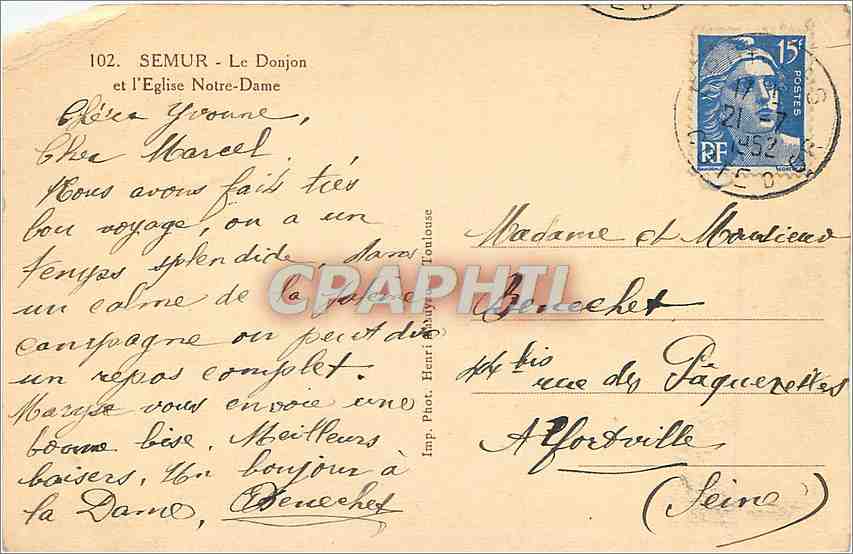 102. SEMUR - Le Donjon
et l'Eglise Notre-Dame
Chère Yvonne,
Cher Marcel
Nous avons fait très
bon voyage, on a un
temps splendide, dans
un calme de la pleine
campagne on peut dire
un repos complet.
Maryse vous envoie une
bonne bise. Meilleurs
baisers. Un bonjour à
la Dame, Benechet
Imp. Phot. Henri Toulouse
15F
POSTES
RF
17
21 -7
1952
CPAPHIL
Madame et Monsieur
Benechet
44 bis
rue des Pâquerettes
Alfortville
(Seine)